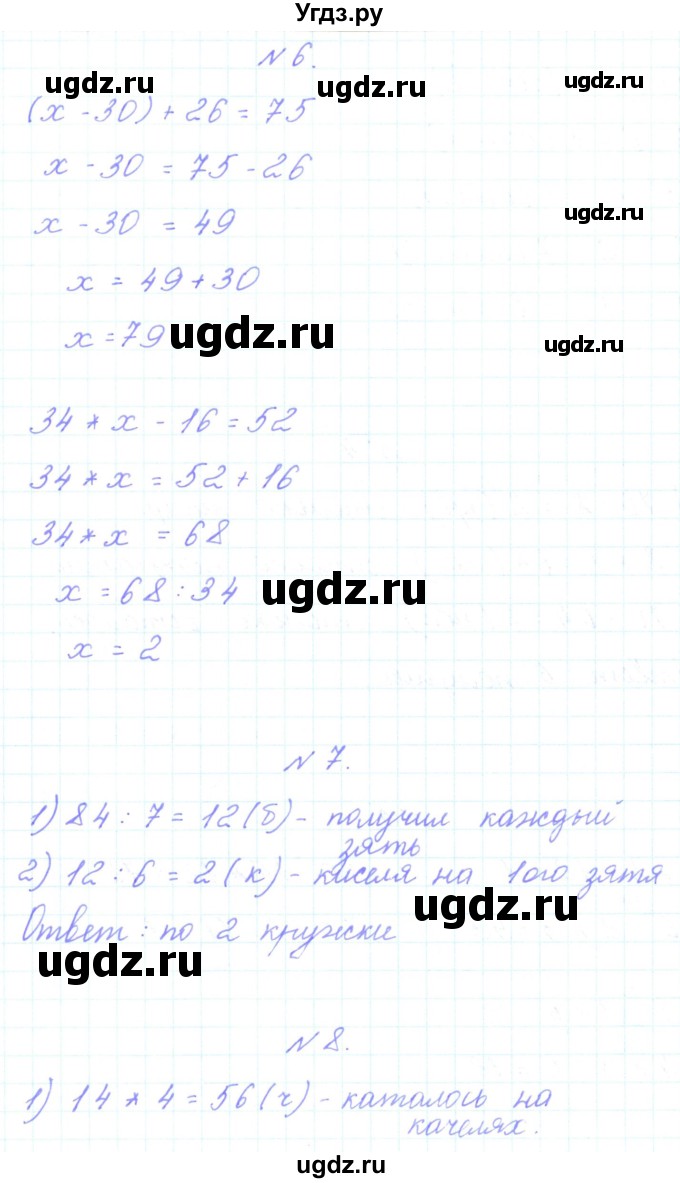 Угдз.ру
N 6.
ugdz.ru ugdz.ru ugdz.ru
(x - 30) + 26 = 75
x - 30 = 75 - 26
x - 30 = 49 ugdz.ru
x = 49 + 30
x = 79 ugdz.ru ugdz.ru
34 * x - 16 = 52
34 * x = 52 + 16
34 * x = 68
x = 68 : 34 ugdz.ru
x = 2
N 7.
1) 84 : 7 = 12 (б) - получил каждый
зять
2) 12 : 6 = 2 (к) - киселя на 1ого зятя
ugdz.ru
Ответ : по 2 кружки
ugdz.ru
N 8.
1) 14 * 4 = 56 (ч) - каталось на
качелях.
ugdz.ru